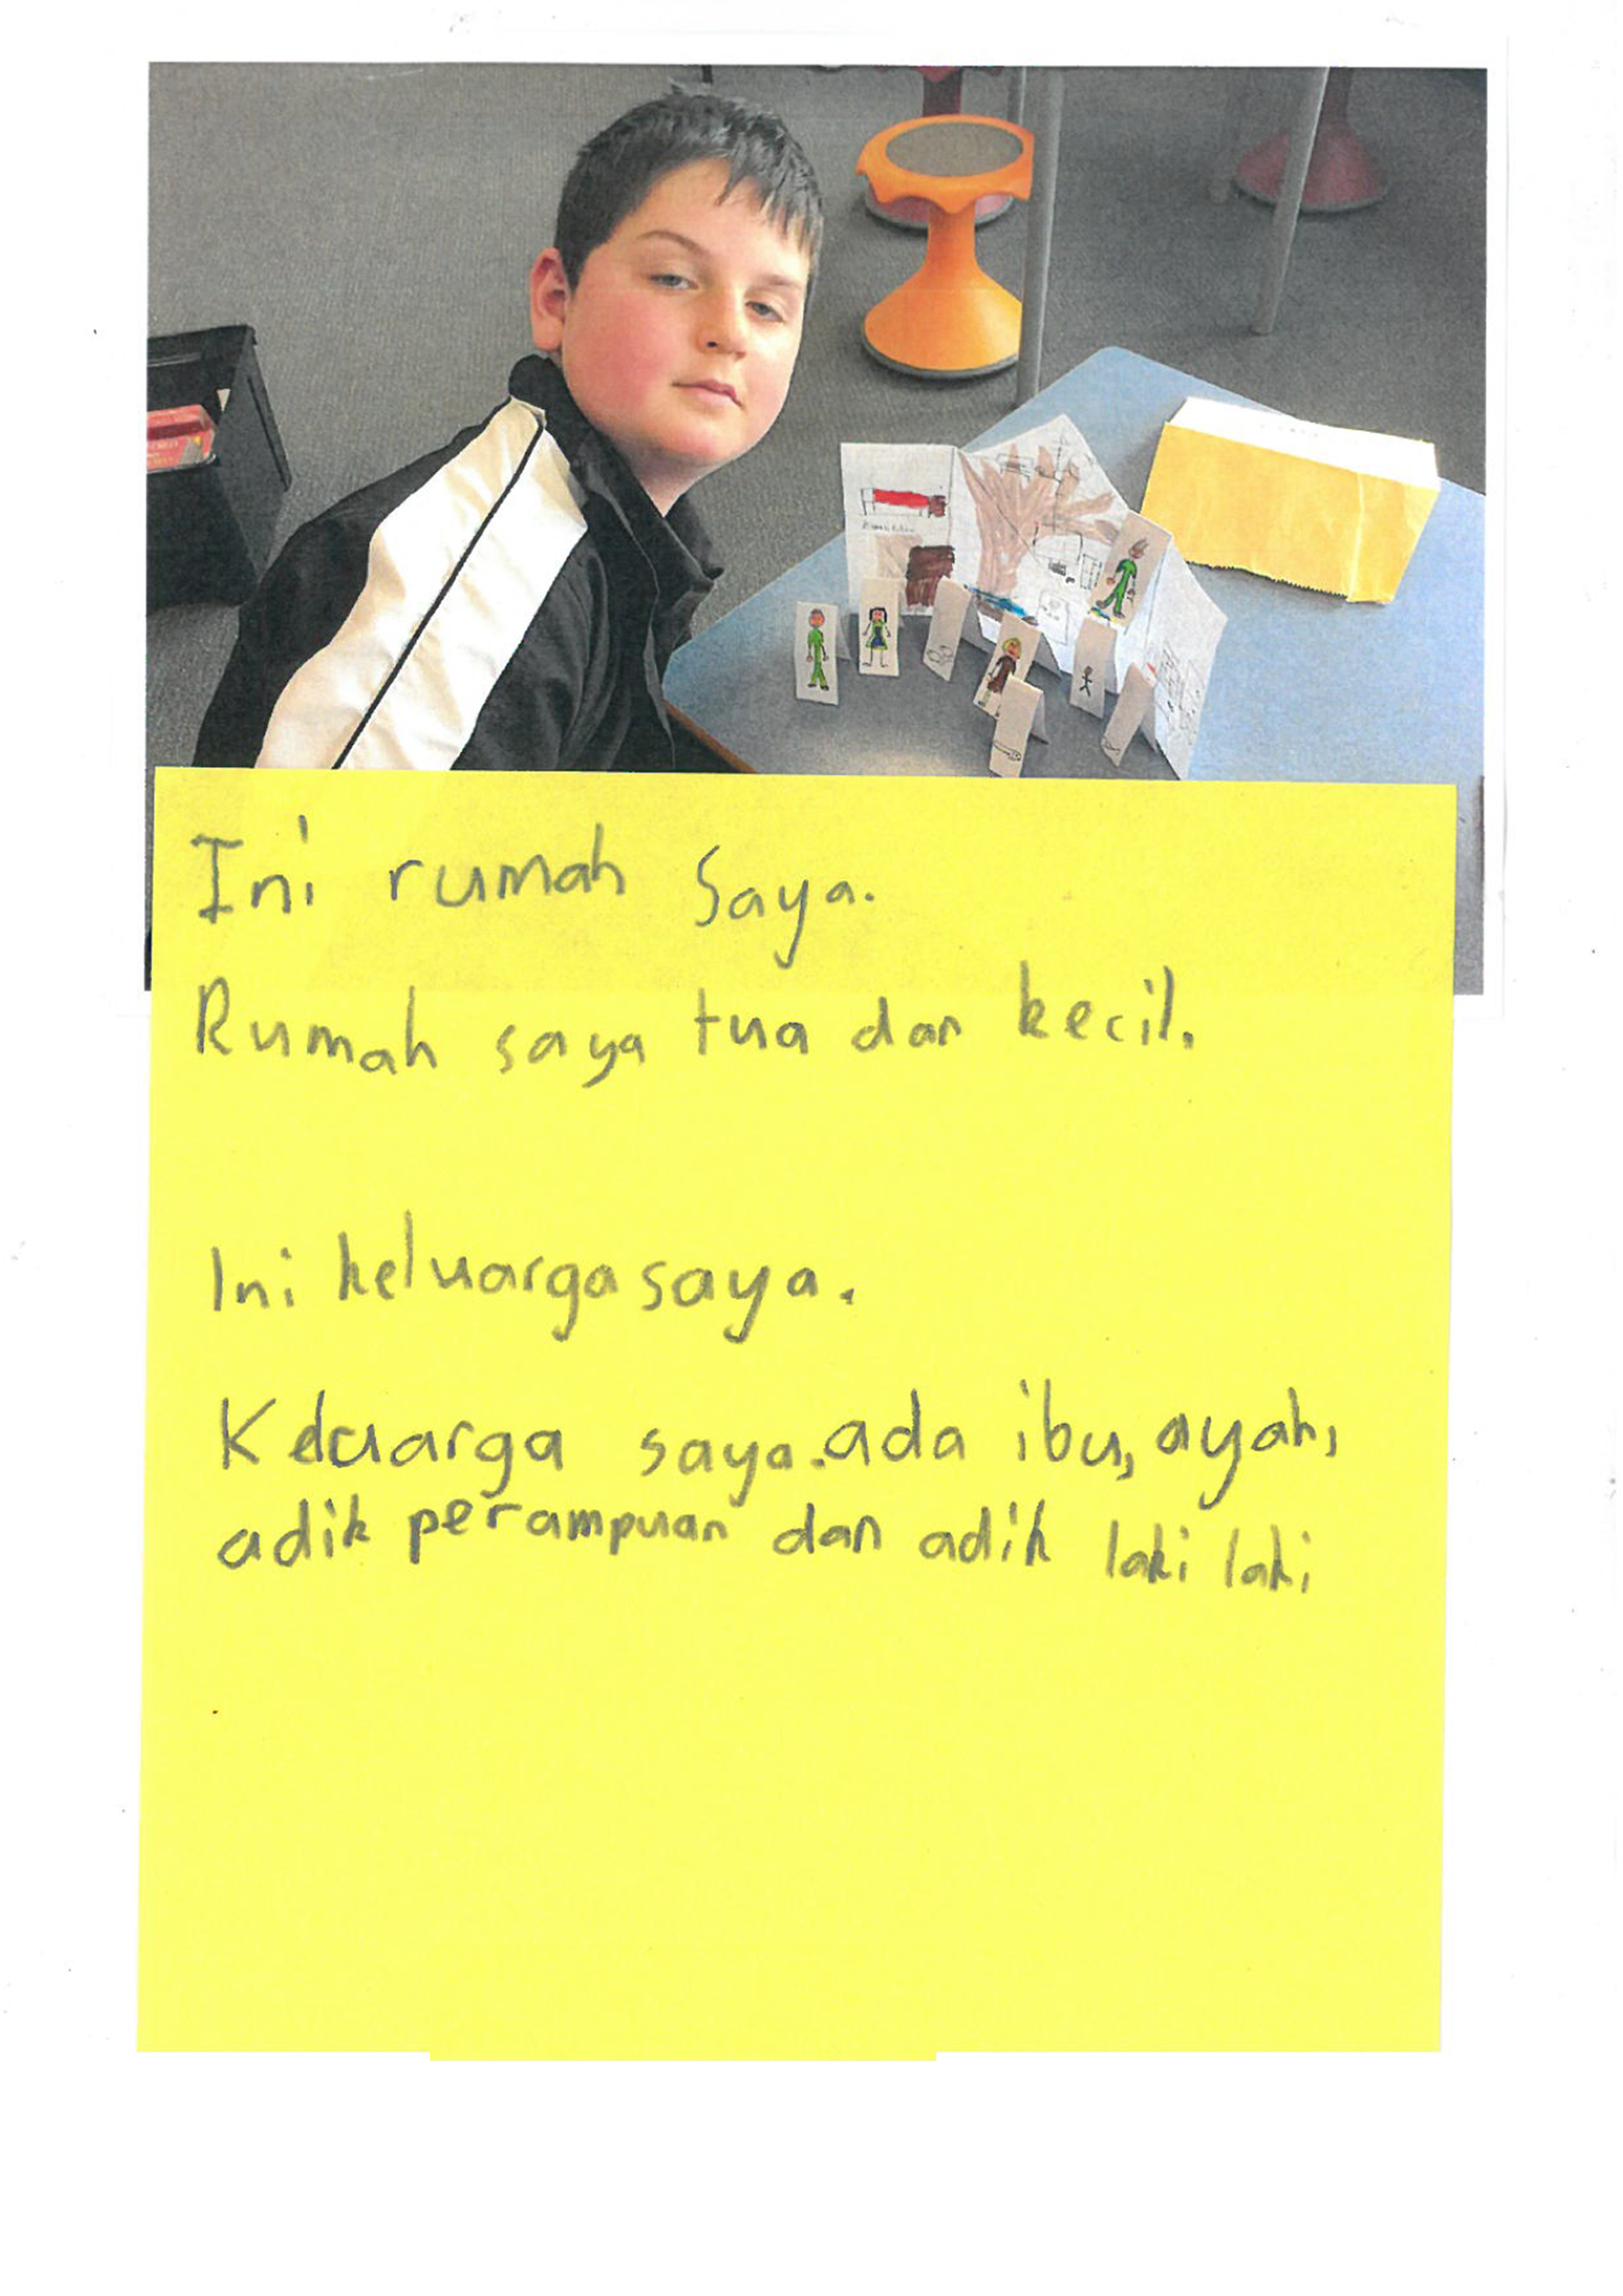 Ini rumah saya.
Rumah saya tua dan kecil.
Ini keluarga saya.
Keluarga saya. ada ibu, ayah,
adik perampuan dan adik laki laki